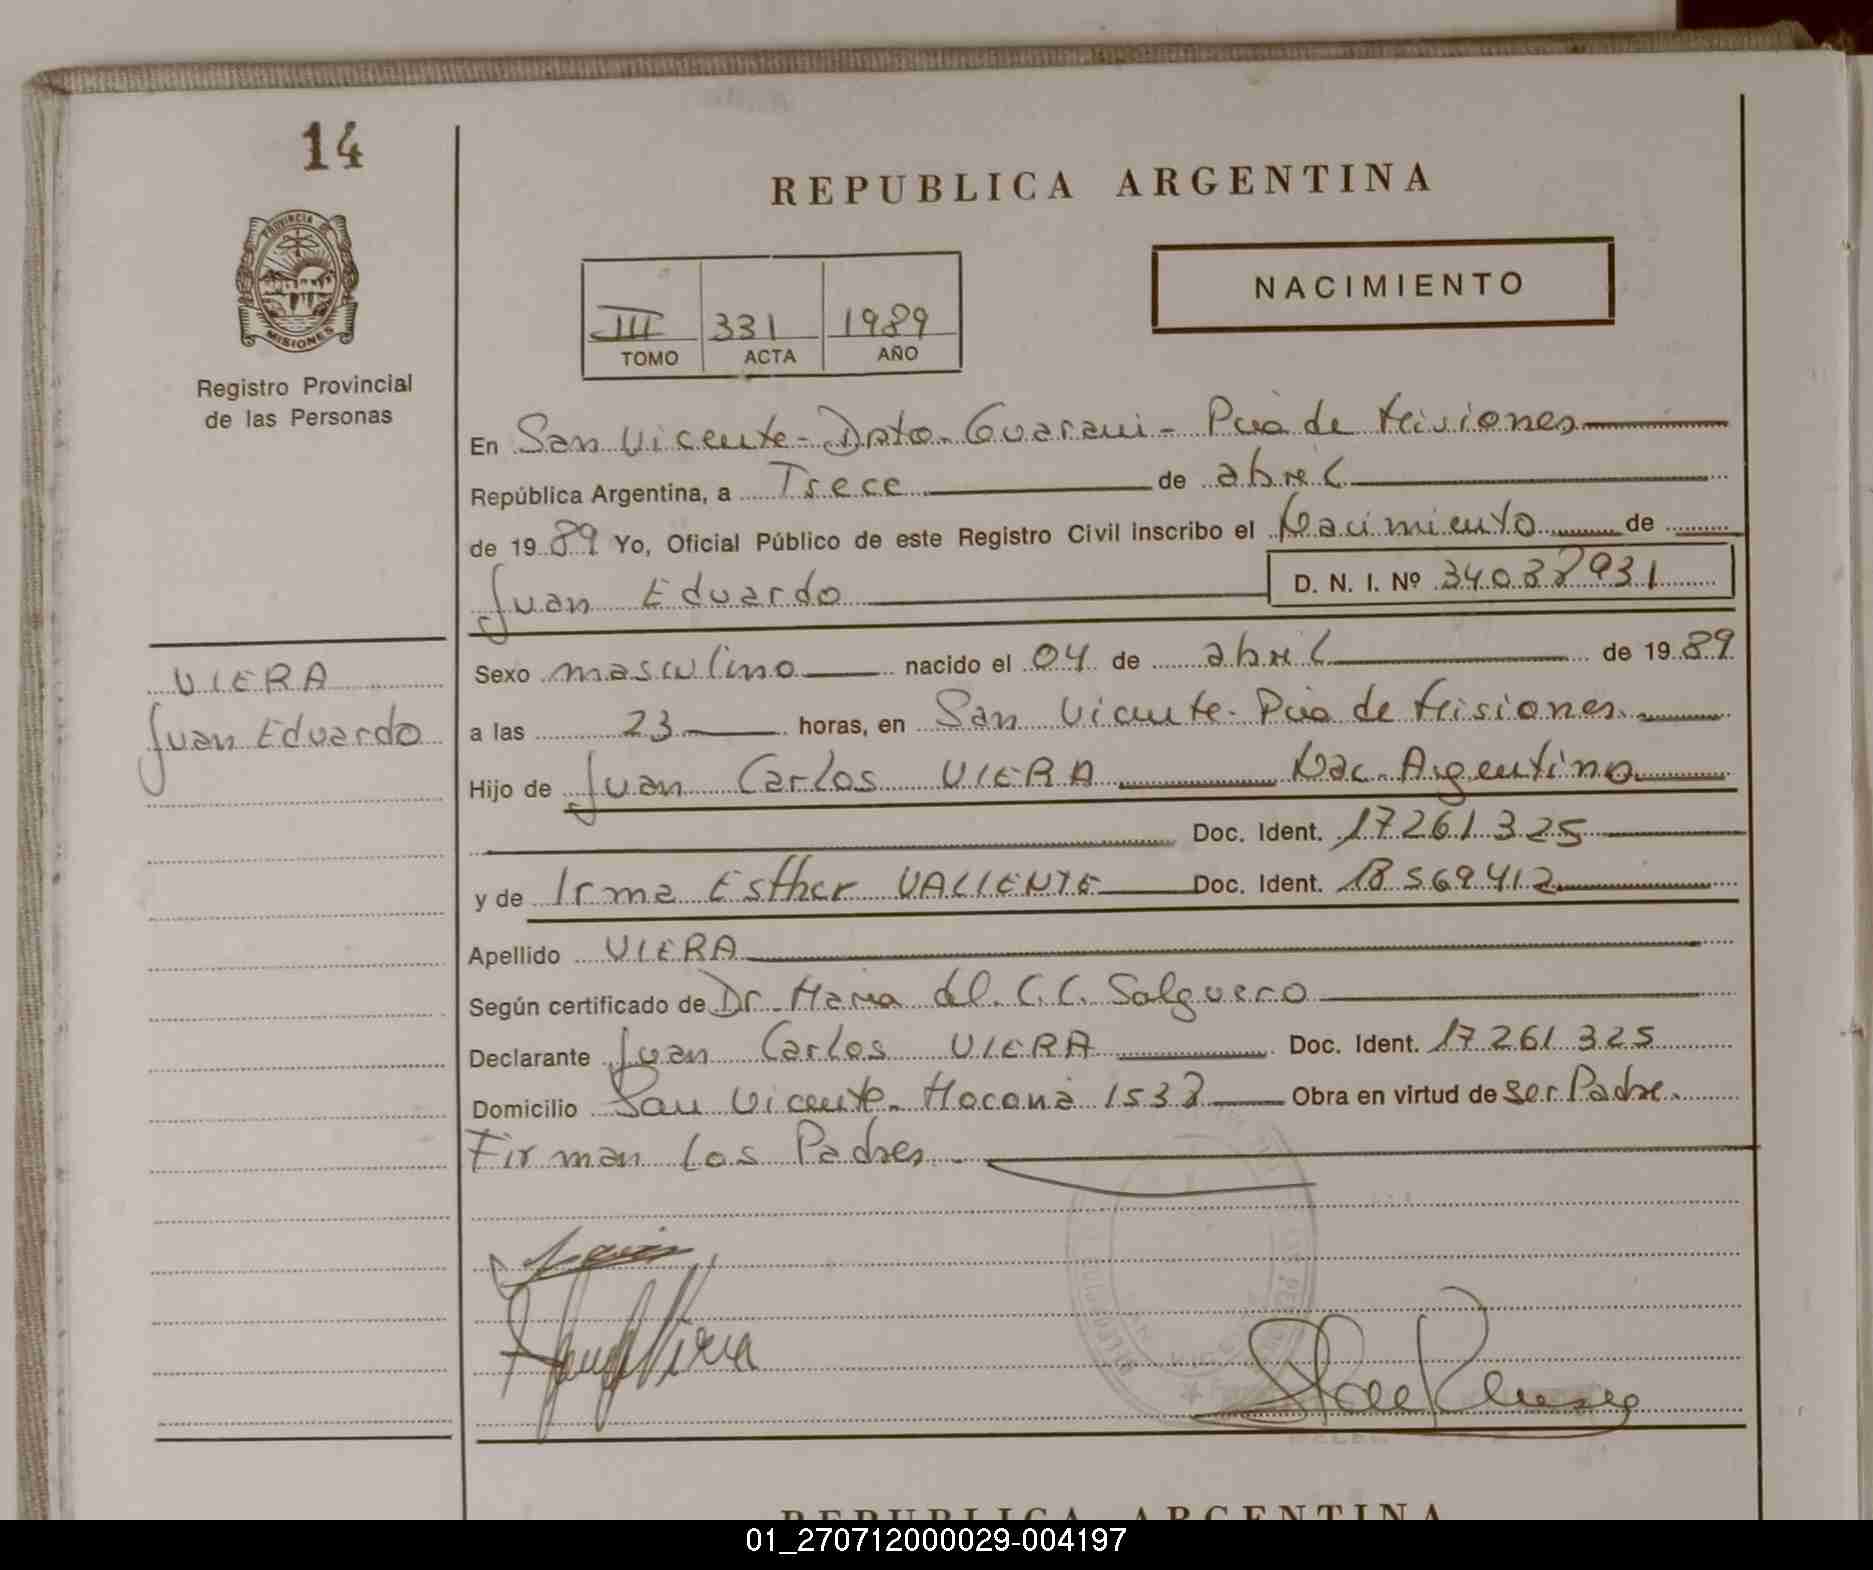 14
REPUBLICA ARGENTINA
PROVINCIA DE
MISIONES
Registro Provincial
de las Personas
NACIMIENTO
III 331 1989
TOMO ACTA AÑO
En San Vicente - Dpto. Guarani - Pcia de Misiones
República Argentina, a Trece de abril
de 1989 Yo, Oficial Público de este Registro Civil inscribo el Nacimiento de
Juan Eduardo D. N. I. Nº 34038931
Sexo masculino nacido el 04 de abril de 1989
VIERA
Juan Eduardo
a las 23 horas, en San Vicente - Pcia de Misiones
Hijo de Juan Carlos VIERA Nac. Argentino
Doc. Ident. 17261325
y de Irma Esther VALIENTE Doc. Ident. 18569412
Apellido VIERA
Según certificado de Dr. Maria del C. C. Salguero
Declarante Juan Carlos VIERA Doc. Ident. 17261325
Domicilio San Vicente - Mocona 1538 Obra en virtud de ser Padre.
Firman los Padres.
REPUBLICA ARGENTINA
01_270712000029-004197